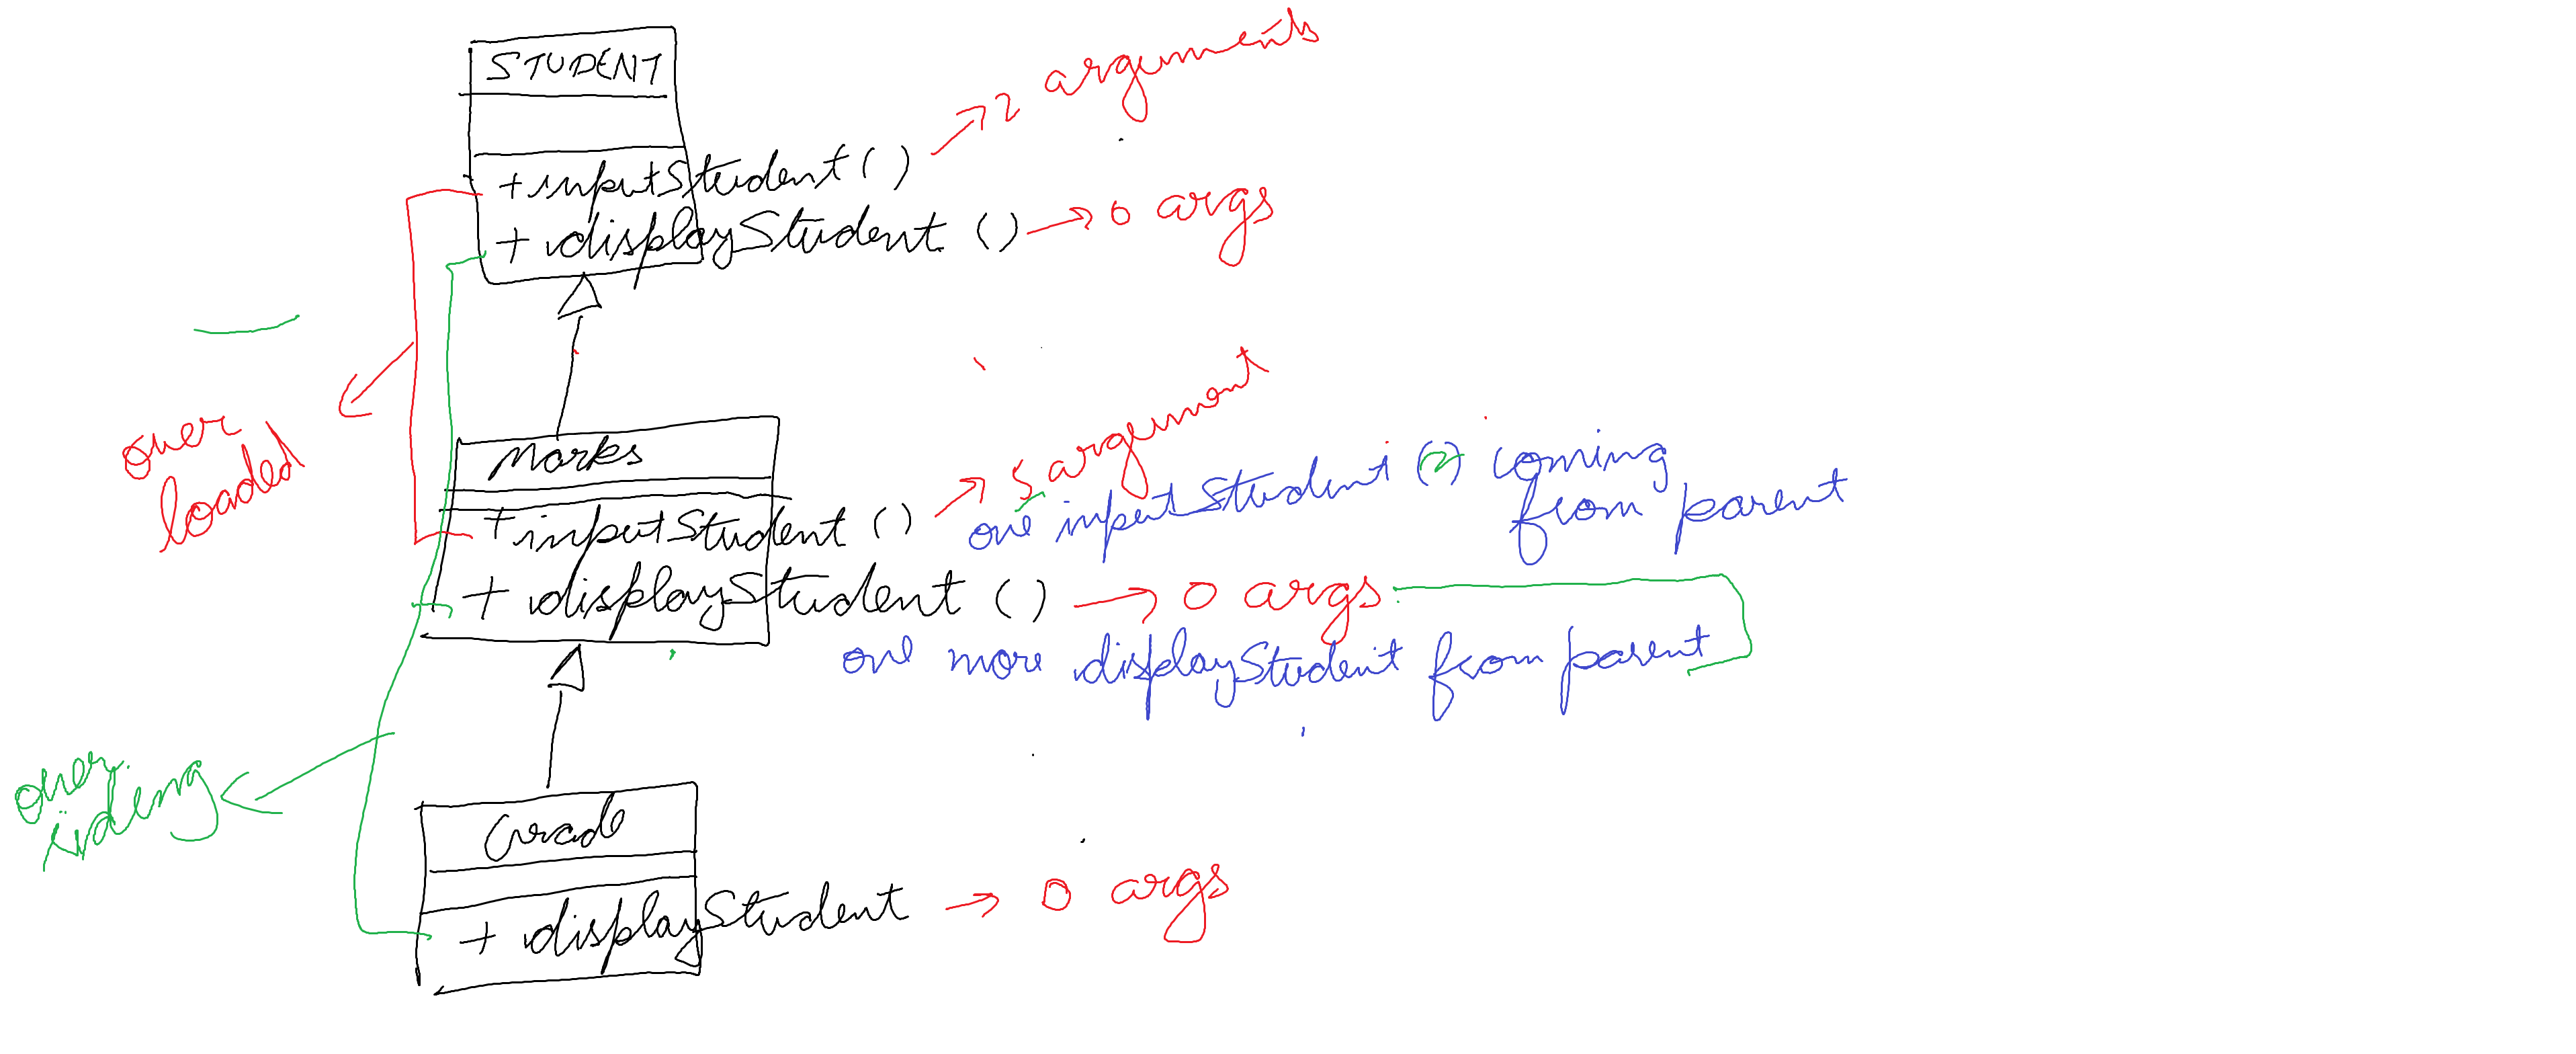 STUDENT
+inputStudent() → 2 arguments
+ displayStudent () → 0 args
over
loaded
Marks
+inputStudent () → 5 argument
one inputStudent (2) coming
from parent
+ displayStudent () → 0 args
one more displayStudent from parent
over
riding
Grade
+ displayStudent → 0 args